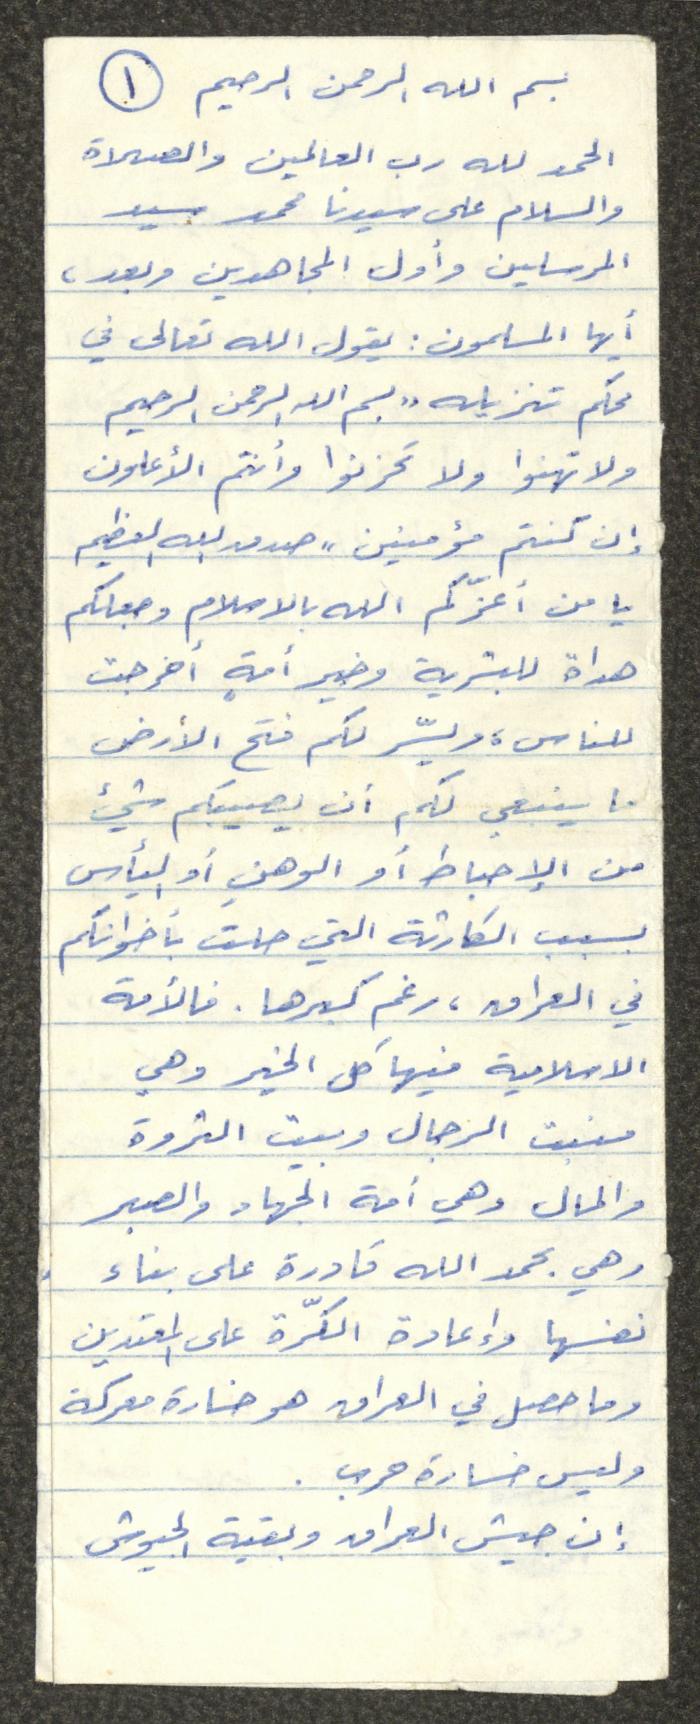 بسم الله الرحمن الرحيم ١
الحمد لله رب العالمين والصلاة
والسلام على سيدنا محمد سيد
المرسلين وأول المجاهدين وبعد،
أيها المسلمون: يقول الله تعالى في
محكم تنزيله "بسم الله الرحمن الرحيم
ولا تهنوا ولا تحزنوا وأنتم الأعلون
إن كنتم مؤمنين" صدق الله العظيم
يا من أعزّكم الله بالاسلام وجعلكم
هداة للبشرية وخير أمةٍ أخرجت
للناس، ويسّر لكم فتح الأرض
ما ينبغي لكم أن يصيبكم شيئ
من الإحباط أو الوهن أو اليأس
بسبب الكارثة التي حلت بأخوانكم
في العراق، رغم كبرها. فالأمة
الاسلامية فيها كل الخير وهي
منبت الرجال وبيت الثروة
والمال وهي أمة الجهاد والصبر
وهي بحمد الله قادرة على بناء
نفسها وإعادة الكرّة على المعتدين
وما حصل في العراق هو خسارة معركة
وليس خسارة حرب.
إن جيش العراق وبقية الجيوش